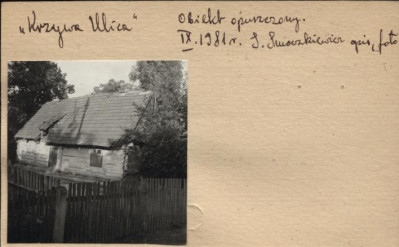 „Krzywa Ulica"
Obiekt opuszczony.
IX.1981r. J. Smoczkiewicz opis, foto